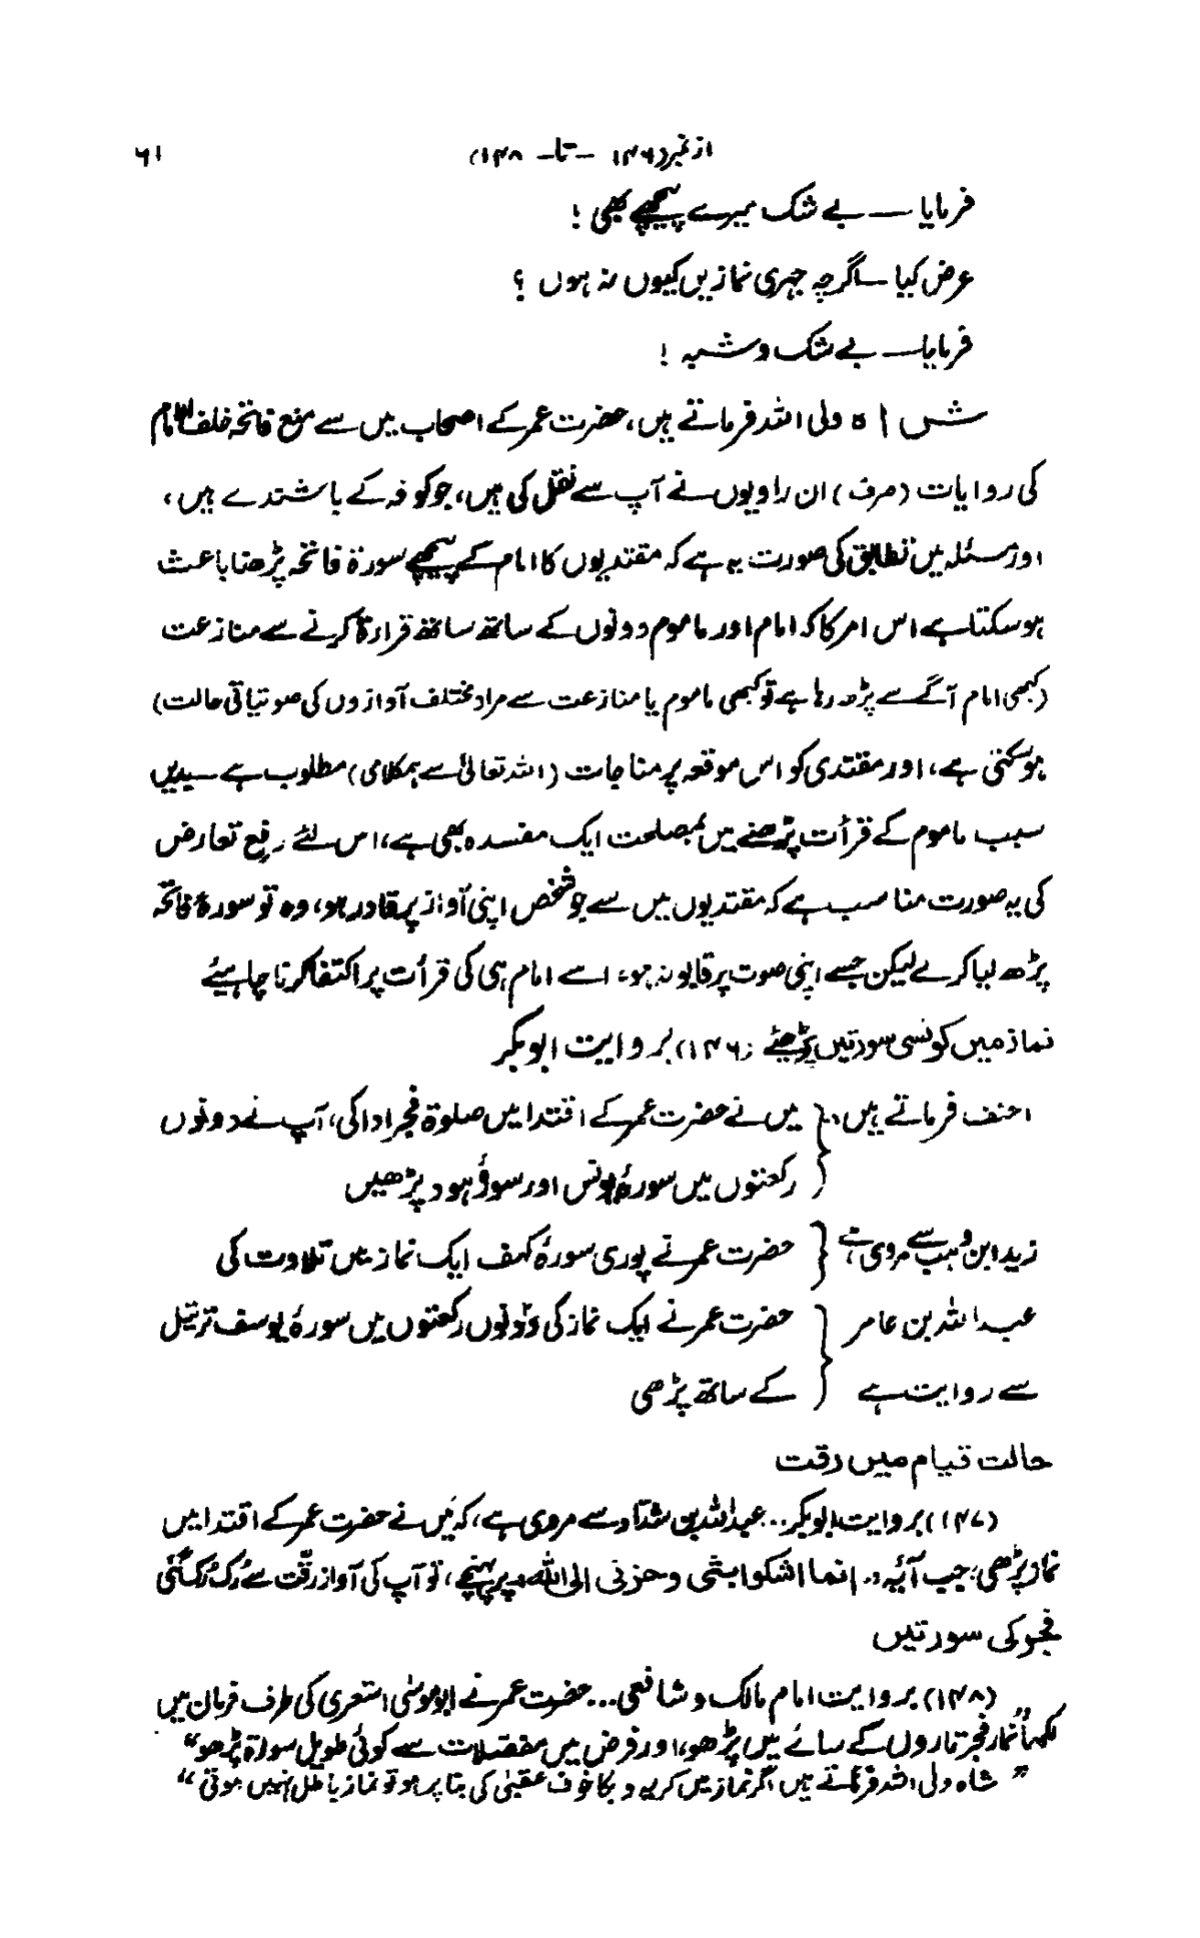 از نمبر (۱۴۶ — تا — ۱۴۸) ۶۱
فرمایا — بے شک میرے پیچھے بھی !
عرض کیا — اگرچہ جہری نمازیں کیوں نہ ہوں ؟
فرمایا — بے شک و شبہ !
شاہ ولی اللہ فرماتے ہیں، حضرت عمر کے اصحاب میں سے منع فاتحہ خلف الامام
کی روایات (صرف) ان راویوں نے آپ سے نقل کی ہیں، جو کوفہ کے باشندے ہیں،
اور مسئلہ میں تطابق کی صورت یہ ہے کہ مقتدیوں کا امام کے پیچھے سورۃ فاتحہ پڑھنا باعث
ہوسکتا ہے اس امر کا کہ امام اور ماموم دونوں کے ساتھ ساتھ قرارۃ کرنے سے منازعت
(کبھی امام آگے سے پڑھ رہا ہے تو کبھی ماموم یا منازعت سے مراد مختلف آوازوں کی صوتیاتی حالت)
ہوسکتی ہے، اور مقتدی کو اس موقعہ پر مناجات (اللہ تعالیٰ سے ہمکلامی) مطلوب ہے
سبب ماموم کے قرأت پڑھنے میں بمصلحت ایک مفسدہ بھی ہے، اس لئے رفع تعارض
کی یہ صورت مناسب ہے کہ مقتدیوں میں سے جو شخص اپنی آواز پر قادر ہو، وہ تو سورۂ فاتحہ
پڑھ لیا کرے لیکن جسے اپنی صوت پر قابو نہ ہو، اسے امام ہی کی قرأت پر اکتفا کرنا چاہیئے
نماز میں کونسی سورتیں پڑھیئے (۱۴۶) بروایت ابوبکر
احنف فرماتے ہیں، { میں نے حضرت عمر کے اقتدا میں صلوۃ فجر ادا کی، آپ نے دونوں
رکعتوں میں سورۂ یونس اور سورۂ ہود پڑھیں
زید ابن وہب سے مروی ہے { حضرت عمر نے پوری سورۂ کہف ایک نماز میں تلاوت کی
عبداللہ بن عامر { حضرت عمر نے ایک نماز کی دونوں رکعتوں میں سورۂ یوسف ترتیل
سے روایت ہے { کے ساتھ پڑھی
حالت قیام میں رقت
(۱۴۷) بروایت ابوبکر... عبداللہ بن شداد سے مروی ہے، کہ میں نے حضرت عمر کے اقتدا میں
نماز پڑھی، جب آئیہ ،، انما اشکوا بثی و حزنی الی اللہ ،، پر پہنچے، تو آپ کی آواز رقت سے رک رک گئی
فجر کی سورتیں
(۱۴۸) بروایت امام مالک و شافعی... حضرت عمر نے ابوموسٰی اشعری کی طرف فرمان میں
لکھا "نماز فجر تاروں کے سائے میں پڑھو، اور فرض میں مفصلات سے کوئی طویل سورۃ پڑھو"
"شاہ ولی اللہ فرماتے ہیں اگر نماز میں گریہ و بکا خوف عقبیٰ کی بنا پر ہو تو نماز باطل نہیں ہوتی"